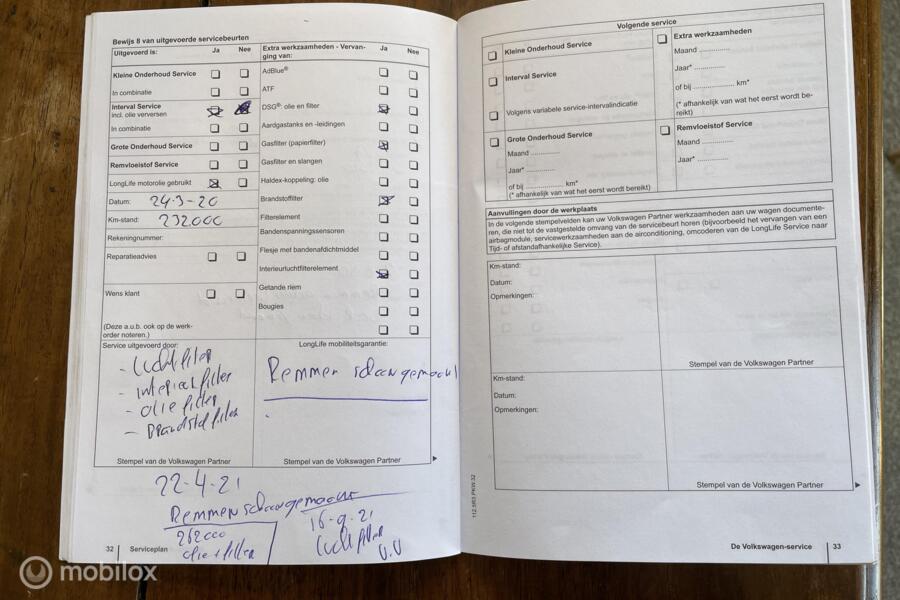 Bewijs 8 van uitgevoerde servicebeurten
Uitgevoerd is: Ja Nee
Kleine Onderhoud Service
In combinatie
Interval Service
incl. olie verversen
In combinatie
Grote Onderhoud Service
Remvloeistof Service
LongLife motorolie gebruikt
Datum: 24-3-20
Km-stand: 232.000
Rekeningnummer:
Reparatieadvies
Wens klant
(Deze a.u.b. ook op de werk-
order noteren.)
Extra werkzaamheden - Vervan-
ging van: Ja Nee
AdBlue®
ATF
DSG®: olie en filter
Aardgastanks en -leidingen
Gasfilter (papierfilter)
Gasfilter en slangen
Haldex-koppeling: olie
Brandstoffilter
Filterelement
Bandenspanningssensoren
Flesje met bandenafdichtmiddel
Interieurluchtfilterelement
Getande riem
Bougies
Service uitgevoerd door:
- Luchtfilter
- interieurfilter
- oliefilter
- Brandstoffilter
Stempel van de Volkswagen Partner
LongLife mobiliteitsgarantie:
Remmen schoongemaakt
Stempel van de Volkswagen Partner
22-4-21
Remmen schoongemaakt
262000
olie + filter
16-9-21
Luchtfilter
V.V
32 Serviceplan
Volgende service
Kleine Onderhoud Service
Interval Service
Volgens variabele service-intervalindicatie
Grote Onderhoud Service
Maand ..............
Jaar* ..............
of bij .................. km*
(* afhankelijk van wat het eerst wordt bereikt)
Extra werkzaamheden
Maand ..............
Jaar* ..............
of bij .................. km*
(* afhankelijk van wat het eerst wordt be-
reikt)
Remvloeistof Service
Maand ..............
Jaar* ..............
Aanvullingen door de werkplaats
In de volgende stempelvelden kan uw Volkswagen Partner werkzaamheden aan uw wagen documente-
ren, die niet tot de vastgestelde omvang van de servicebeurt horen (bijvoorbeeld het vervangen van een
airbagmodule, servicewerkzaamheden aan de airconditioning, omcoderen van de LongLife Service naar
Tijd- of afstandafhankelijke Service).
Km-stand:
Datum:
Opmerkingen:
Stempel van de Volkswagen Partner
Km-stand:
Datum:
Opmerkingen:
Stempel van de Volkswagen Partner
De Volkswagen-service 33
mobilox